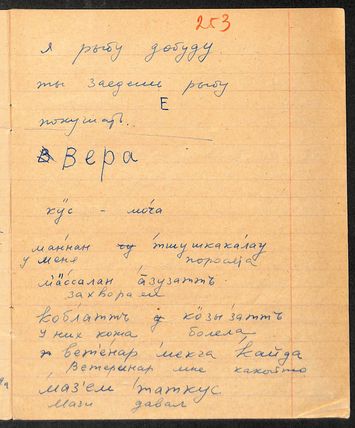 253
я рыбу добуду
ты заедеш рыбу
Е
покушать.
Вера
кӱс - моча
маннан тшушкакалау
у меня поросята
массалан азузатть
захворали
коблатть кӧзызатть
у них кожа болела
ветенар мекга кайда
Ветеринар мне какойто
мазем таткус
мази давал